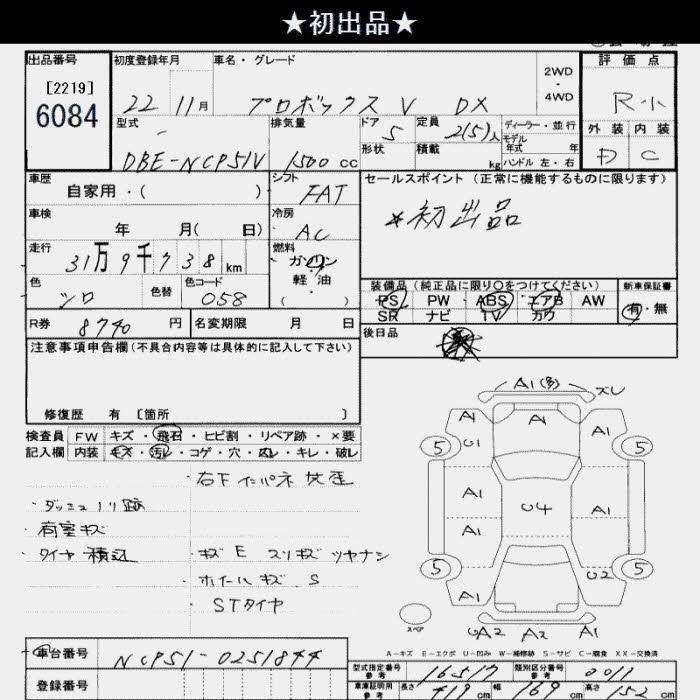 ★初出品★
出品番号 初度登録年月 車名・グレード 2WD・4WD 評価点
[2219]
6084
22 11月 プロボックス V DX R-小
型式 排気量 ドア 定員 ディーラー・並行 外装 内装
5 2(5)人 モデル年式 年
DBE-NCP51V 1500cc 形状 積載 kg ハンドル 左・右 D C
車歴 シフト セールスポイント(正常に機能するものに限ります)
自家用・( ) FAT
*初出品
車検 冷房
年 月( 日) AC
走行 燃料
31万9千738km ガソリン
軽・油
( ・ )
色 色替 色コード 装備品(純正品に限り○をつけてください) 新車保証書
シロ 058 PS PW ABS エアB AW 有・無
SR ナビ TV カワ
R券 8740円 名変期限 月 日 後日品
注意事項申告欄(不具合内容等は具体的に記入して下さい)
修復歴 有 [箇所 ]
検査員 FW キズ・飛石・ヒビ割・リペア跡・×要
記入欄 内装 キズ・汚レ・コゲ・穴・スレ・キレ・破レ
・右下インパネ欠歪
・ダッシュノリ跡
・荷室キズ
・タイヤ積込
・キズE スリキズ ツヤナシ
・ホイールキズ.S
・STタイヤ
A1(多) ズレ
A1 A1 A1
5 U1 5
A1 U4 A1
A1
5 U2 5
A1
スペア
UA2 A2 A1
A-キズ E-エクボ U-凹み W-補修跡 S-サビ C-腐食 XX-交換済
車台番号 NCP51-0251844
登録番号
型式指定番号 参考 16517 類別区分番号 参考 0011
車庫証明用 参考 長さ 419cm 幅 169cm 高さ 152cm